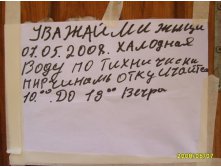 УВАЖАЙМИ жицы
07.05.2008. ХАЛОДНАЯ
Воду ПО ТИХНИЧИСКИ
ПИРЧИНАМ ОТКУЧАЙТСА
10.00. ДО 18.00 Вечра